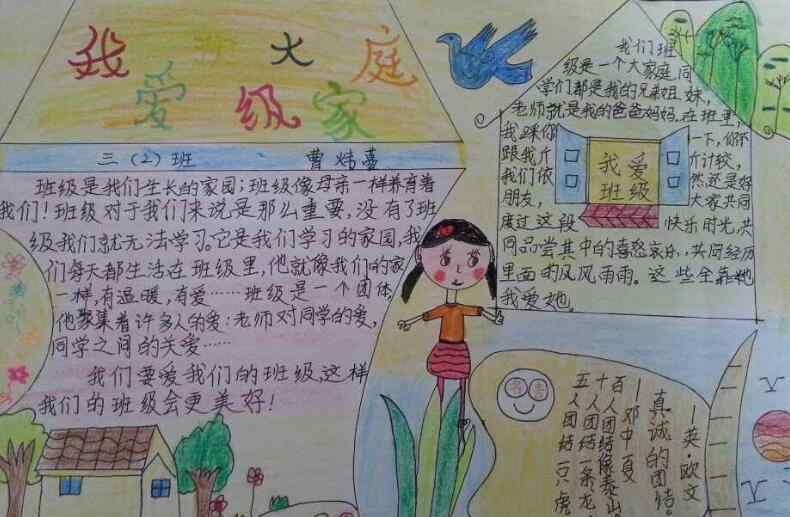 我 大 庭
爱 级 家
三(2)班 曹炜嘉
班级是我们生长的家园;班级像母亲一样养育着
我们!班级对于我们来说是那么重要,没有了班
级我们就无法学习。它是我们学习的家园,我
们每天都生活在班级里,他就像我们的家
一样,有温暖,有爱……班级是一个团体,
他聚集着许多人的爱:老师对同学的爱,
同学之间的关爱……
我们要爱我们的班级,这样
我们的班级会更美好!
我们班
级是一个大家庭,同
学们都是我的兄弟姐妹,
老师就是我的爸爸妈妈.在班里,
我踩你 一下,你不
跟我斤 斤计较,
我们依 然还是好
朋友, 大家共同
度过这段 快乐时光,共
同品尝其中的喜怒哀乐,共同经历
里面的风风雨雨。这些全靠她
我爱她。
我爱
班级
五人团结一只虎
十人团结一条龙
百人团结像泰山
—邓中夏
真诚的团结。
—英·欧文